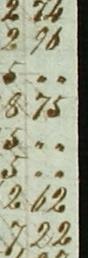 2 74
2 96
5 " "
8 75
5 " "
5 " "
2 62
7 22